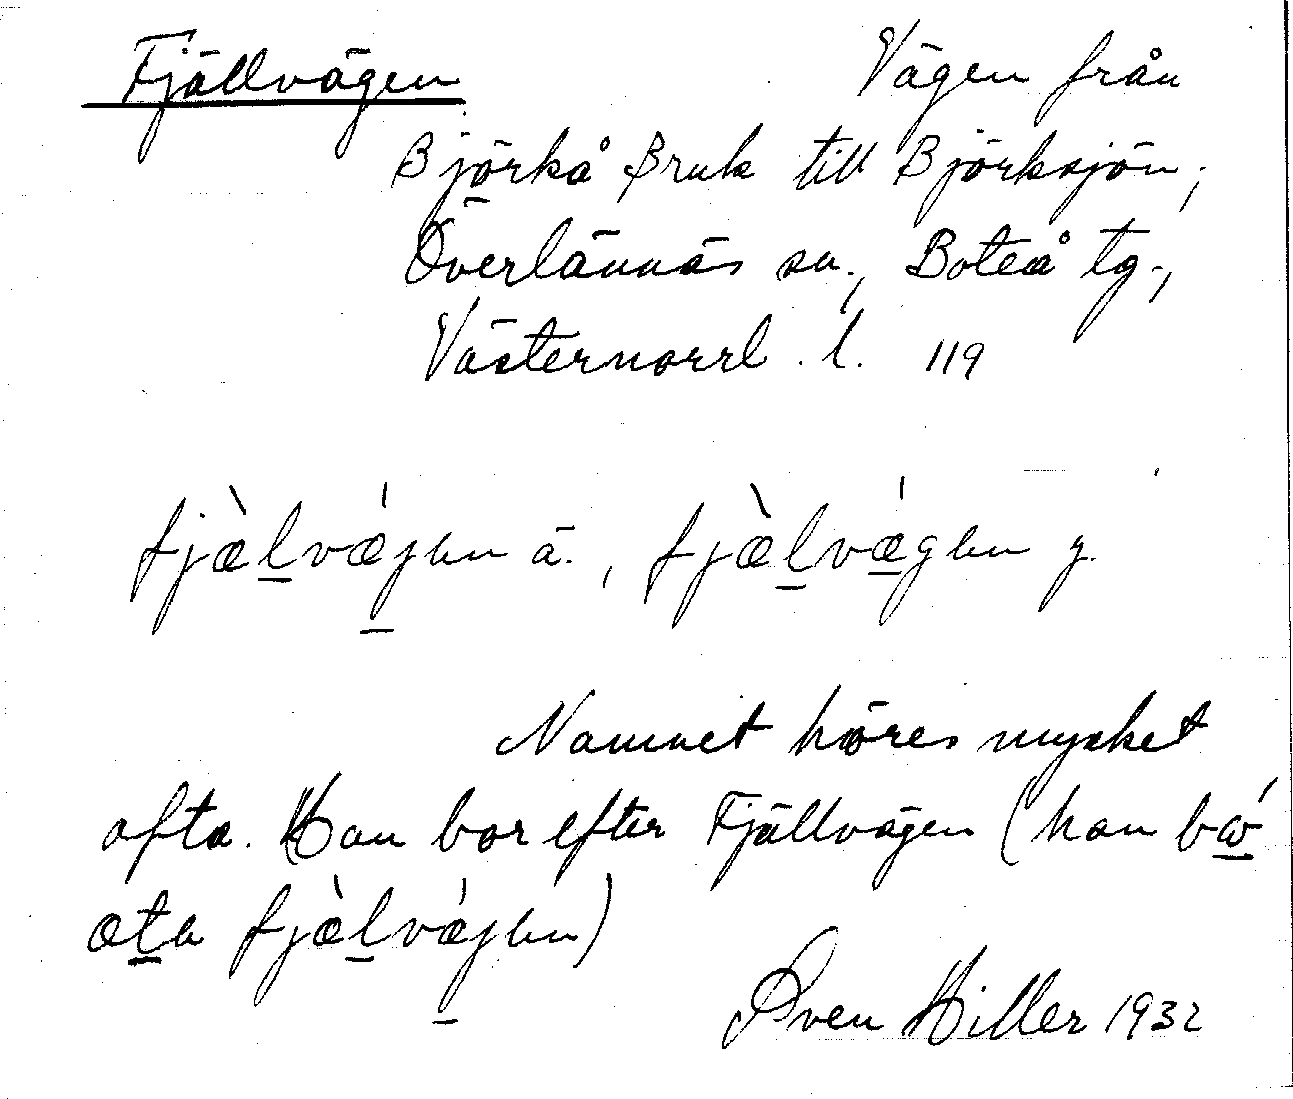 Fjällvägen Vägen från
Björkå Bruk till Björksjön,
Överlännäs sn., Boteå tg.,
Västernorrl. l. 119
fjæ̀l̲vǽj̲en ä., fjæ̀l̲vǽ̲gen y.
Namnet höres mycket
ofta. Han bor efter Fjällvägen (han
æt̲e fjæ̀l̲vǽj̲en)
Sven Hiller 1932